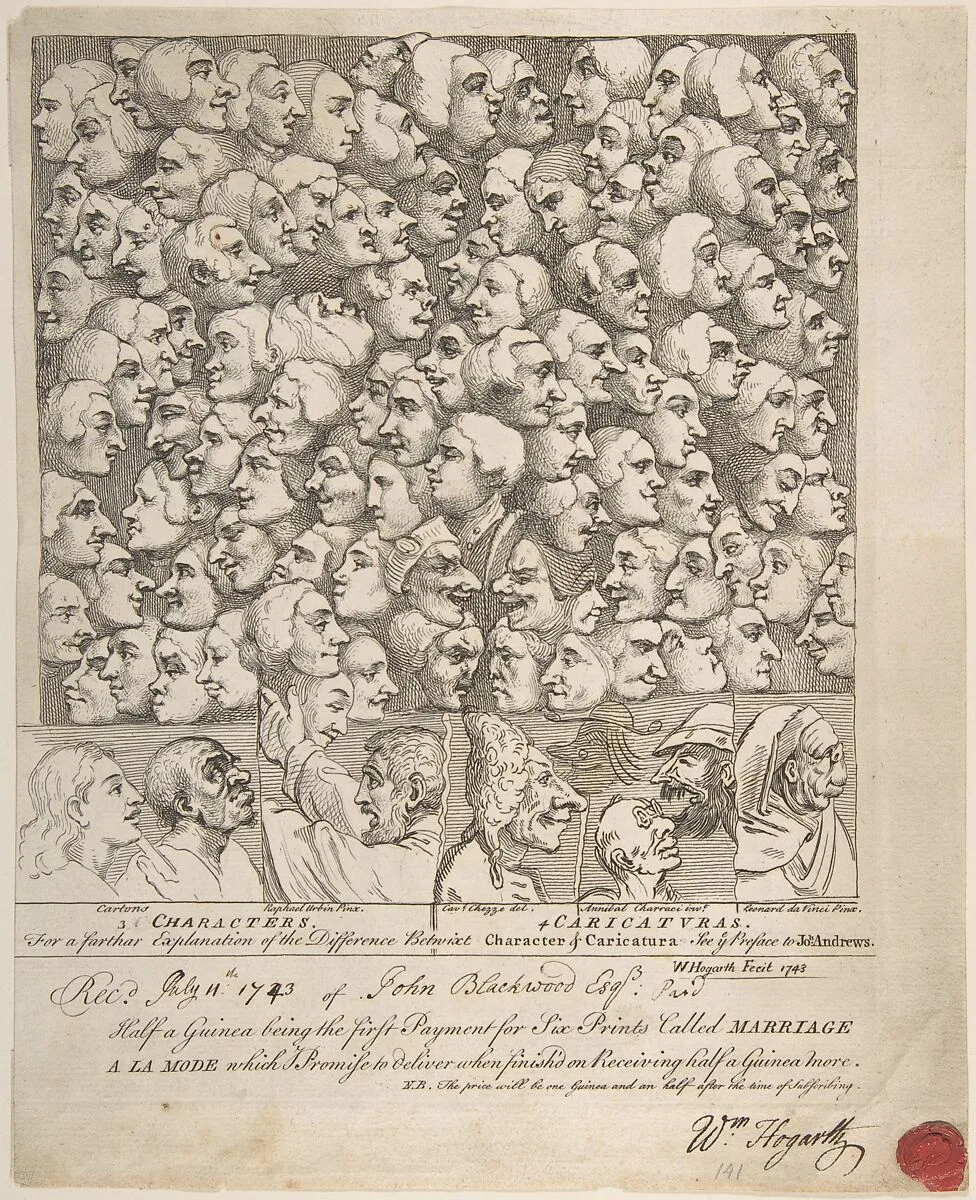 Cartons Raphael Urbin Pinx. Cav.ʳ Chezze del. Annibal Charraci inv.ᵗ Leonard da Vinci Pinx.
3 CHARACTERS. 4 CARICATURAS.
For a farthar Explanation of the Difference Betwixt Character & Caricatura See yᵉ Preface to Joˢ. Andrews.
W Hogarth Fecit 1743
Rec.ᵈ July 11.ᵗʰ 1743 of John Blackwood Esqʳ. Paid
Half a Guinea being the first Payment for Six Prints Called MARRIAGE
A LA MODE which I Promise to deliver when finish'd on Receiving half a Guinea more.
N.B. The price will be one Guinea and an half after the time of Subscribing.
Wᵐ. Hogarth
141